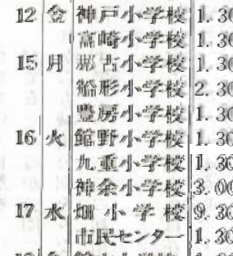 12 金 神戸小学校 1.30
富崎小学校 1.30
15 月 那古小学校 1.30
船形小学校 2.30
豊房小学校 1.30
16 火 館野小学校 1.30
九重小学校 1.30
神余小学校 3.00
17 水 畑小学校 9.30
市民センター 1.30